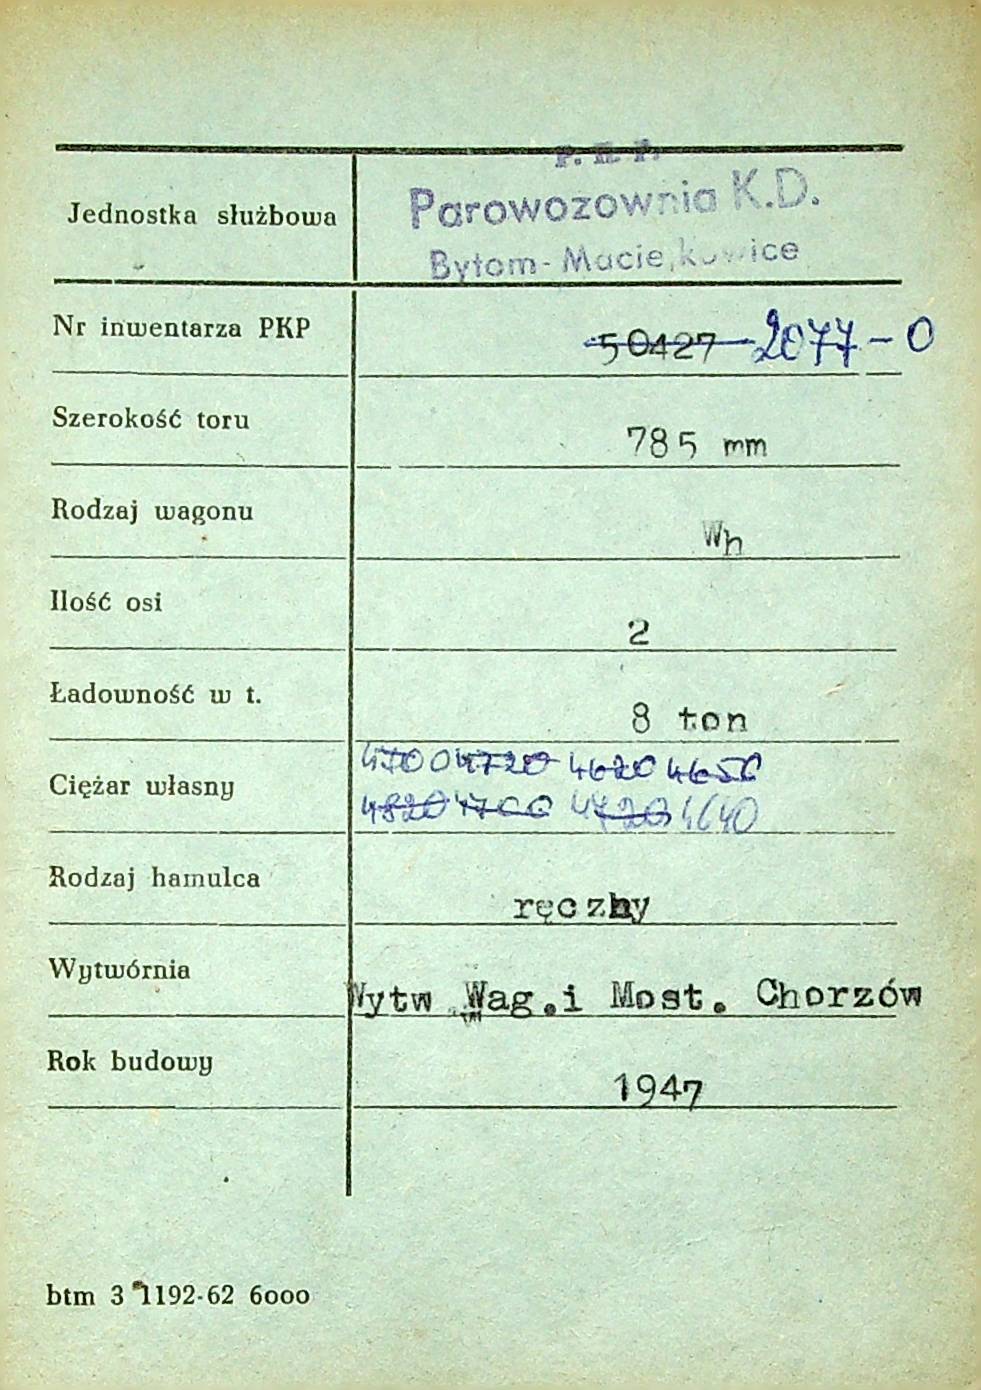 P. K. P.
Jednostka służbowa Parowozownia K.D.
Bytom-Maciejkowice
Nr inwentarza PKP 50427 2077-0
Szerokość toru 785 mm
Rodzaj wagonu Wh
Ilość osi 2
Ładowność w t. 8 ton
Ciężar własny 4700 4720 4620 4650
4820 4700 4720 4640
Rodzaj hamulca ręczny
Wytwórnia Wytw Wag.i Most. Chorzów
Rok budowy 1947
btm 3 1192-62 6000